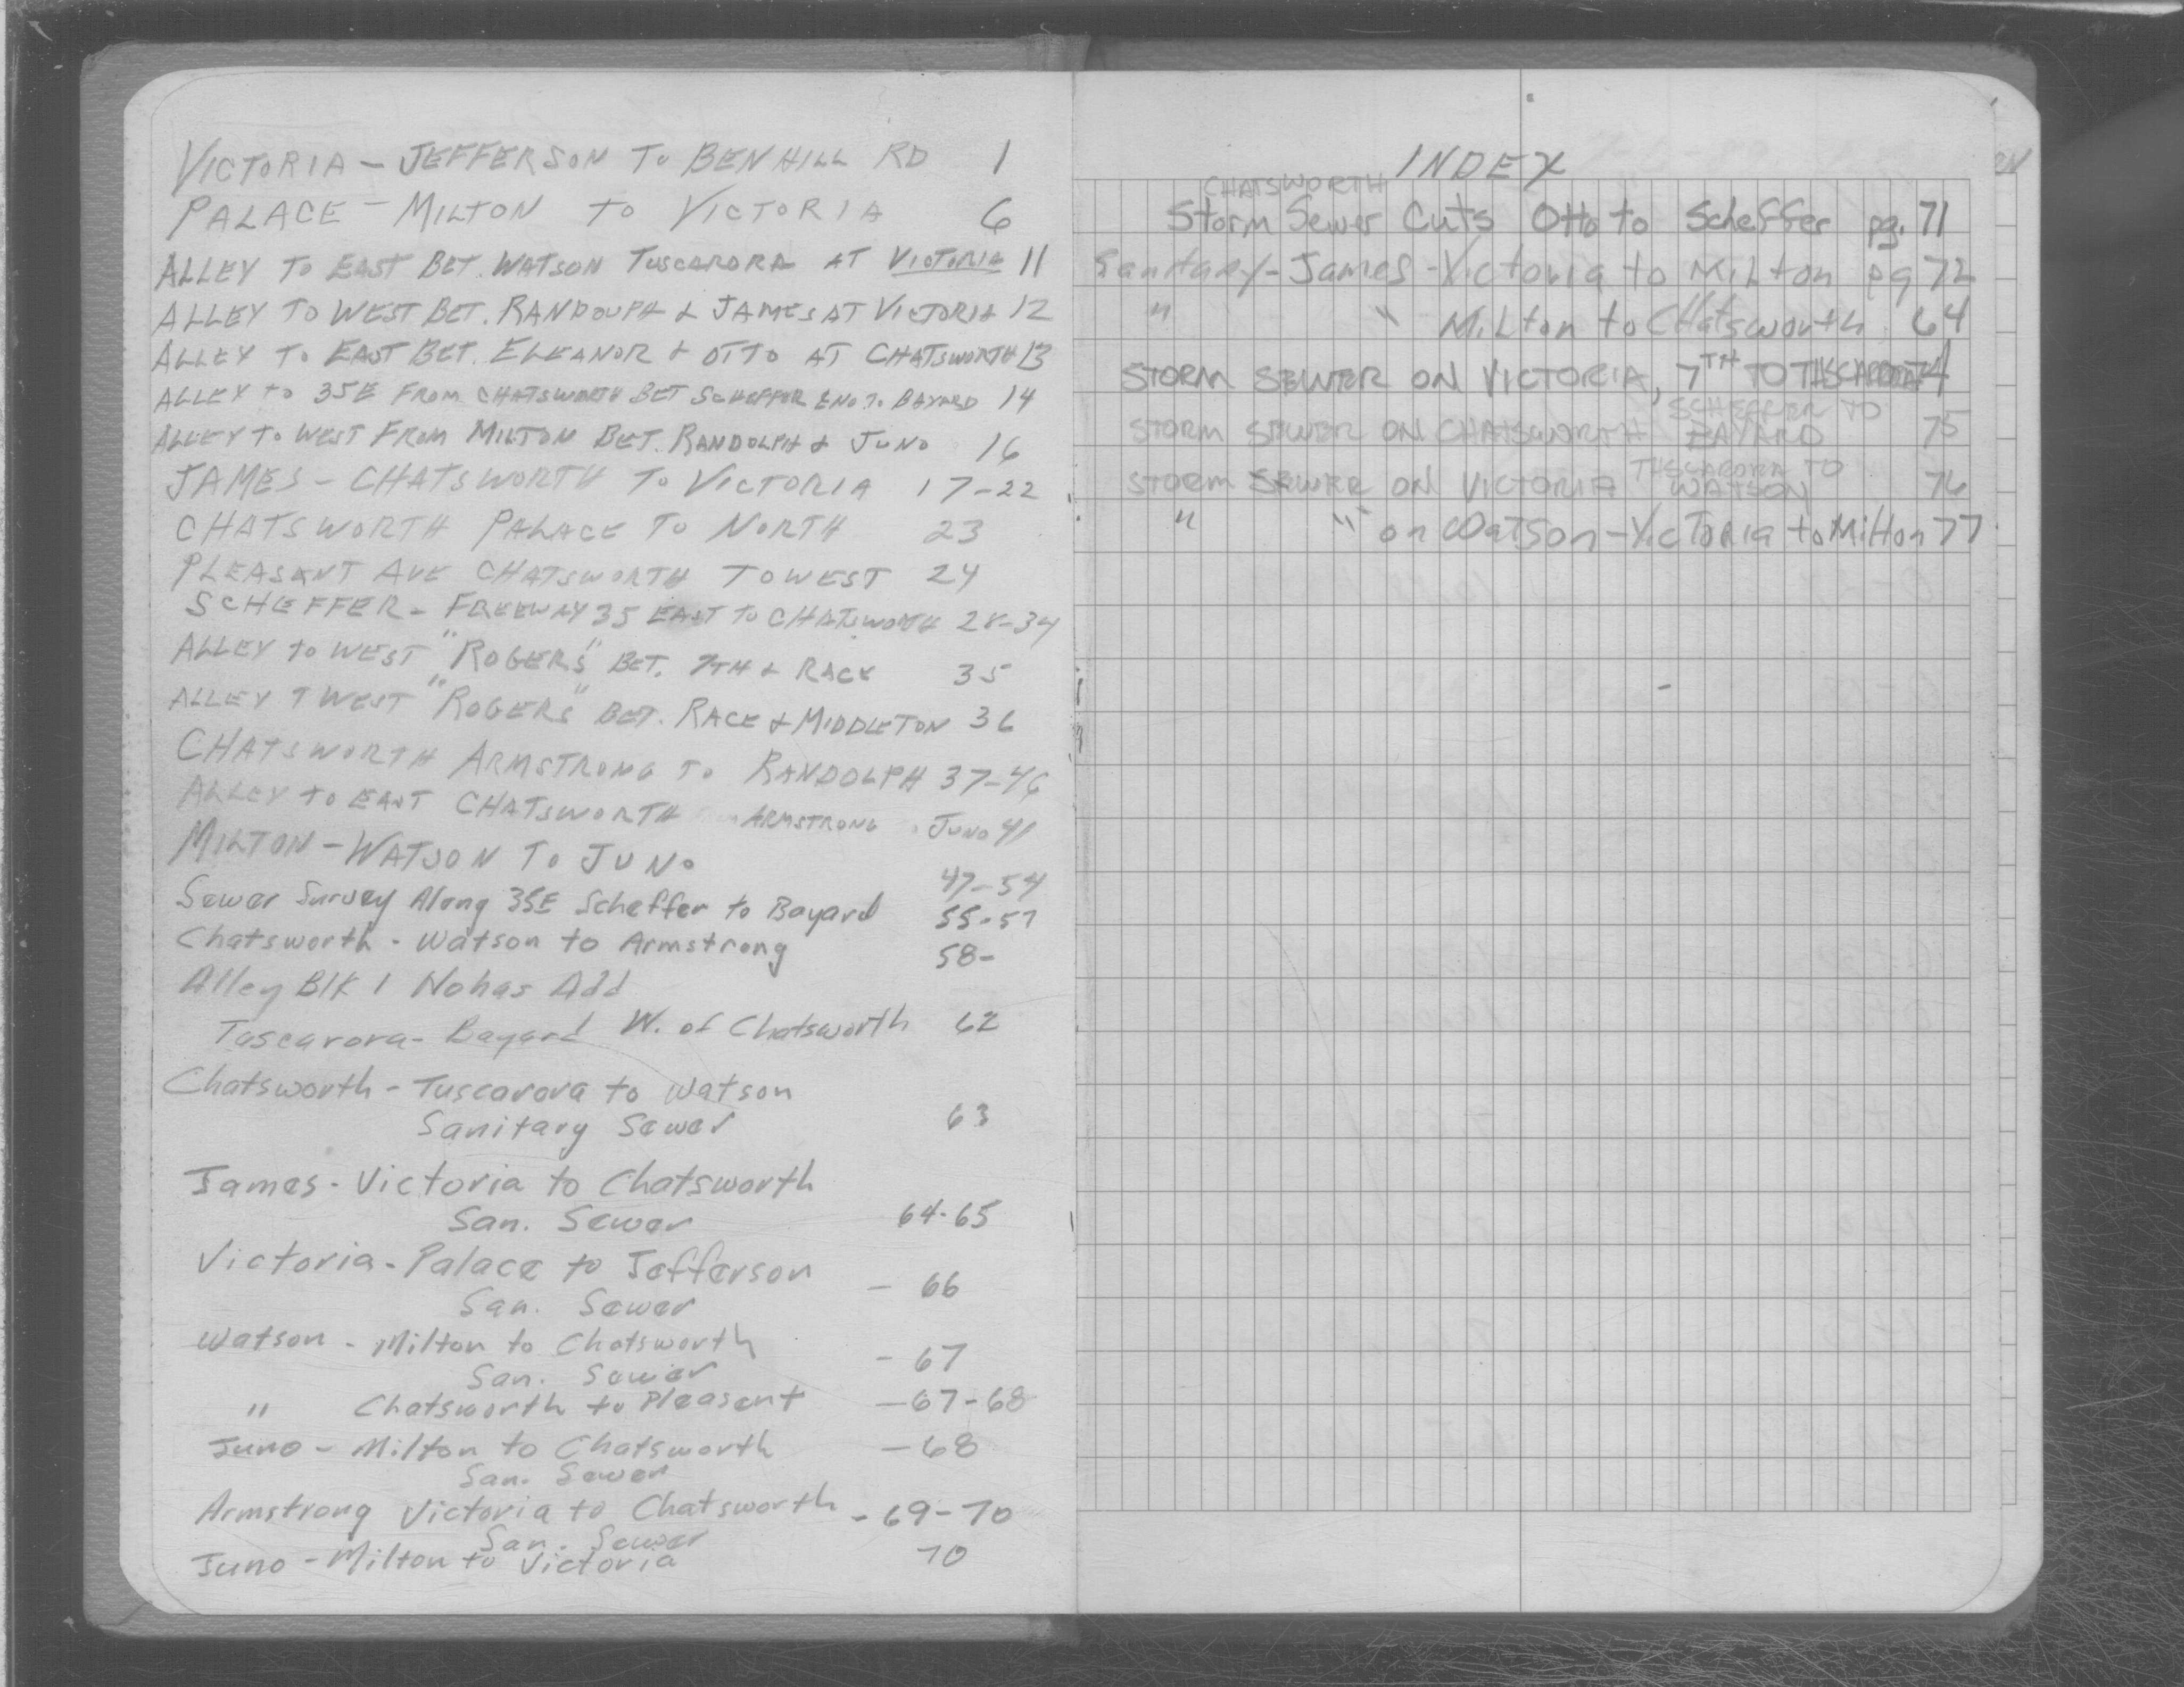 VICTORIA - JEFFERSON TO BENHILL RD 1
PALACE - MILTON TO VICTORIA 6
ALLEY TO EAST BET. WATSON TUSCARORA AT VICTORIA 11
ALLEY TO WEST BET. RANDOLPH & JAMES AT VICTORIA 12
ALLEY TO EAST BET. ELEANOR & OTTO AT CHATSWORTH 13
ALLEY TO 35E FROM CHATSWORTH BET SCHEFFER BAYARD 14
ALLEY TO WEST FROM MILTON BET. RANDOLPH & JUNO 16
JAMES - CHATSWORTH TO VICTORIA 17-22
CHATSWORTH PALACE TO NORTH 23
PLEASANT AVE CHATSWORTH TO WEST 24
SCHEFFER - FREEWAY 35 EAST TO CHATSWORTH 28-34
ALLEY TO WEST "ROGERS" BET. 7TH & RACE 35
ALLEY T WEST "ROGERS" BET. RACE & MIDDLETON 36
CHATSWORTH ARMSTRONG TO RANDOLPH 37-46
ALLEY TO EAST CHATSWORTH ARMSTRONG JUNO 41
MILTON - WATSON TO JUNO 47-54
Sewer Survey Along 35E Scheffer to Bayard 55-57
Chatsworth - Watson to Armstrong 58-
Alley Blk 1 Nohas Add
Tuscarora - Bayard W. of Chatsworth 62
Chatsworth - Tuscarora to Watson
Sanitary Sewer 63
James - Victoria to Chatsworth
San. Sewer 64-65
Victoria - Palace to Jefferson - 66
San. Sewer
Watson - Milton to Chatsworth - 67
San. Sewer
" Chatsworth to Pleasant - 67-68
Juno - Milton to Chatsworth - 68
San. Sewer
Armstrong Victoria to Chatsworth - 69-70
San. Sewer
Juno - Milton to Victoria 70
INDEX
CHATSWORTH
Storm Sewer Cuts Otto to Scheffer pg. 71
Sanitary - James - Victoria to Milton pg 72
" " Milton to Chatsworth 64
STORM SEWER ON VICTORIA, 7TH TO TUSCARORA 74
SCHEFFER TO
STORM SEWER ON CHATSWORTH BAYARD 75
TUSCARORA TO
STORM SEWER ON VICTORIA WATSON 76
" " on Watson - Victoria to Milton 77